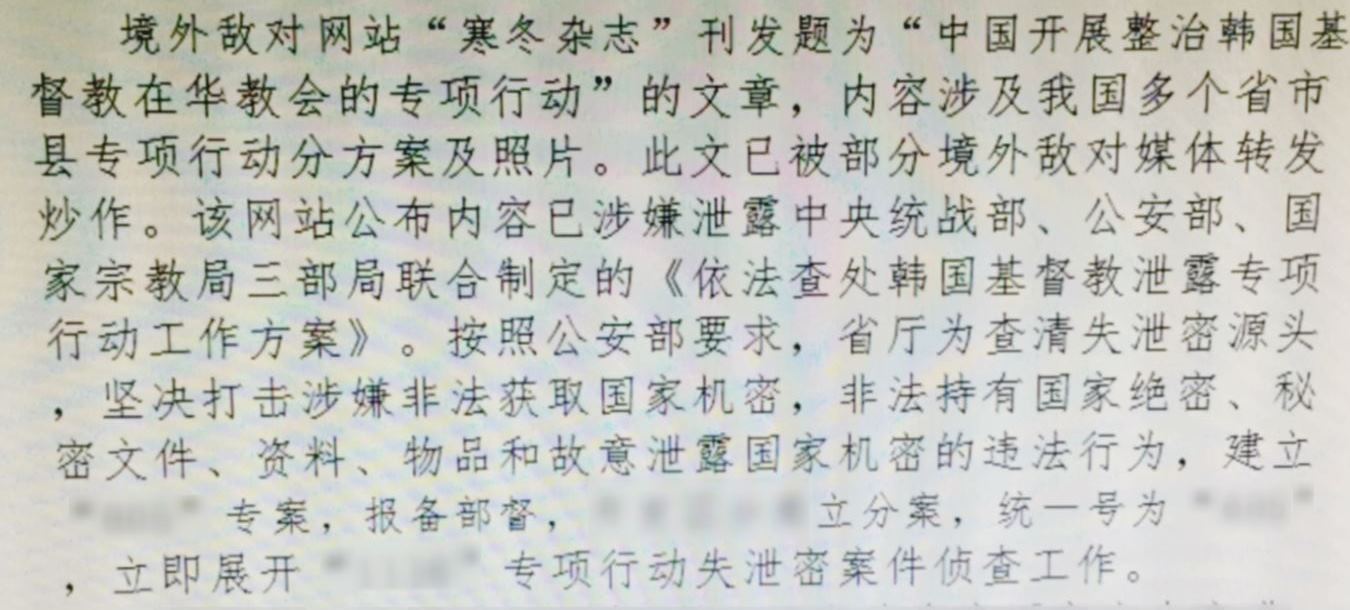 境外敌对网站“寒冬杂志”刊发题为“中国开展整治韩国基
督教在华教会的专项行动”的文章，内容涉及我国多个省市
县专项行动分方案及照片。此文已被部分境外敌对媒体转发
炒作。该网站公布内容已涉嫌泄露中央统战部、公安部、国
家宗教局三部局联合制定的《依法查处韩国基督教泄露专项
行动工作方案》。按照公安部要求，省厅为查清失泄密源头
，坚决打击涉嫌非法获取国家机密，非法持有国家绝密、秘
密文件、资料、物品和故意泄露国家机密的违法行为，建立
专案，报备部督， 立分案，统一号为
，立即展开 专项行动失泄密案件侦查工作。